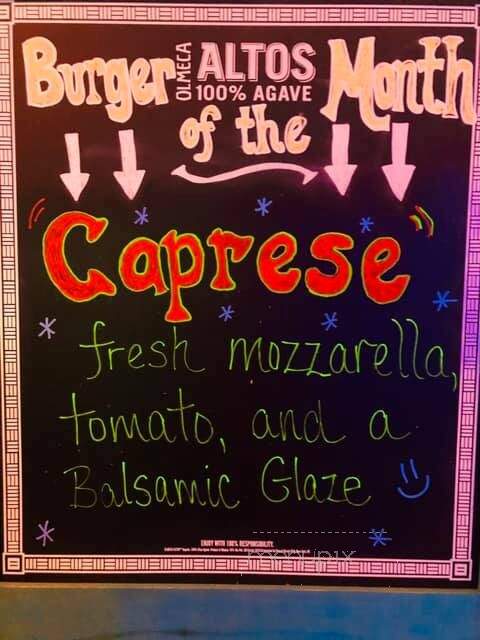 Burger OLMECA ALTOS Month
100% AGAVE
of the
"Caprese"
fresh mozzarella,
tomato, and a
Balsamic Glaze
ENJOY WITH 100% RESPONSIBILITY.